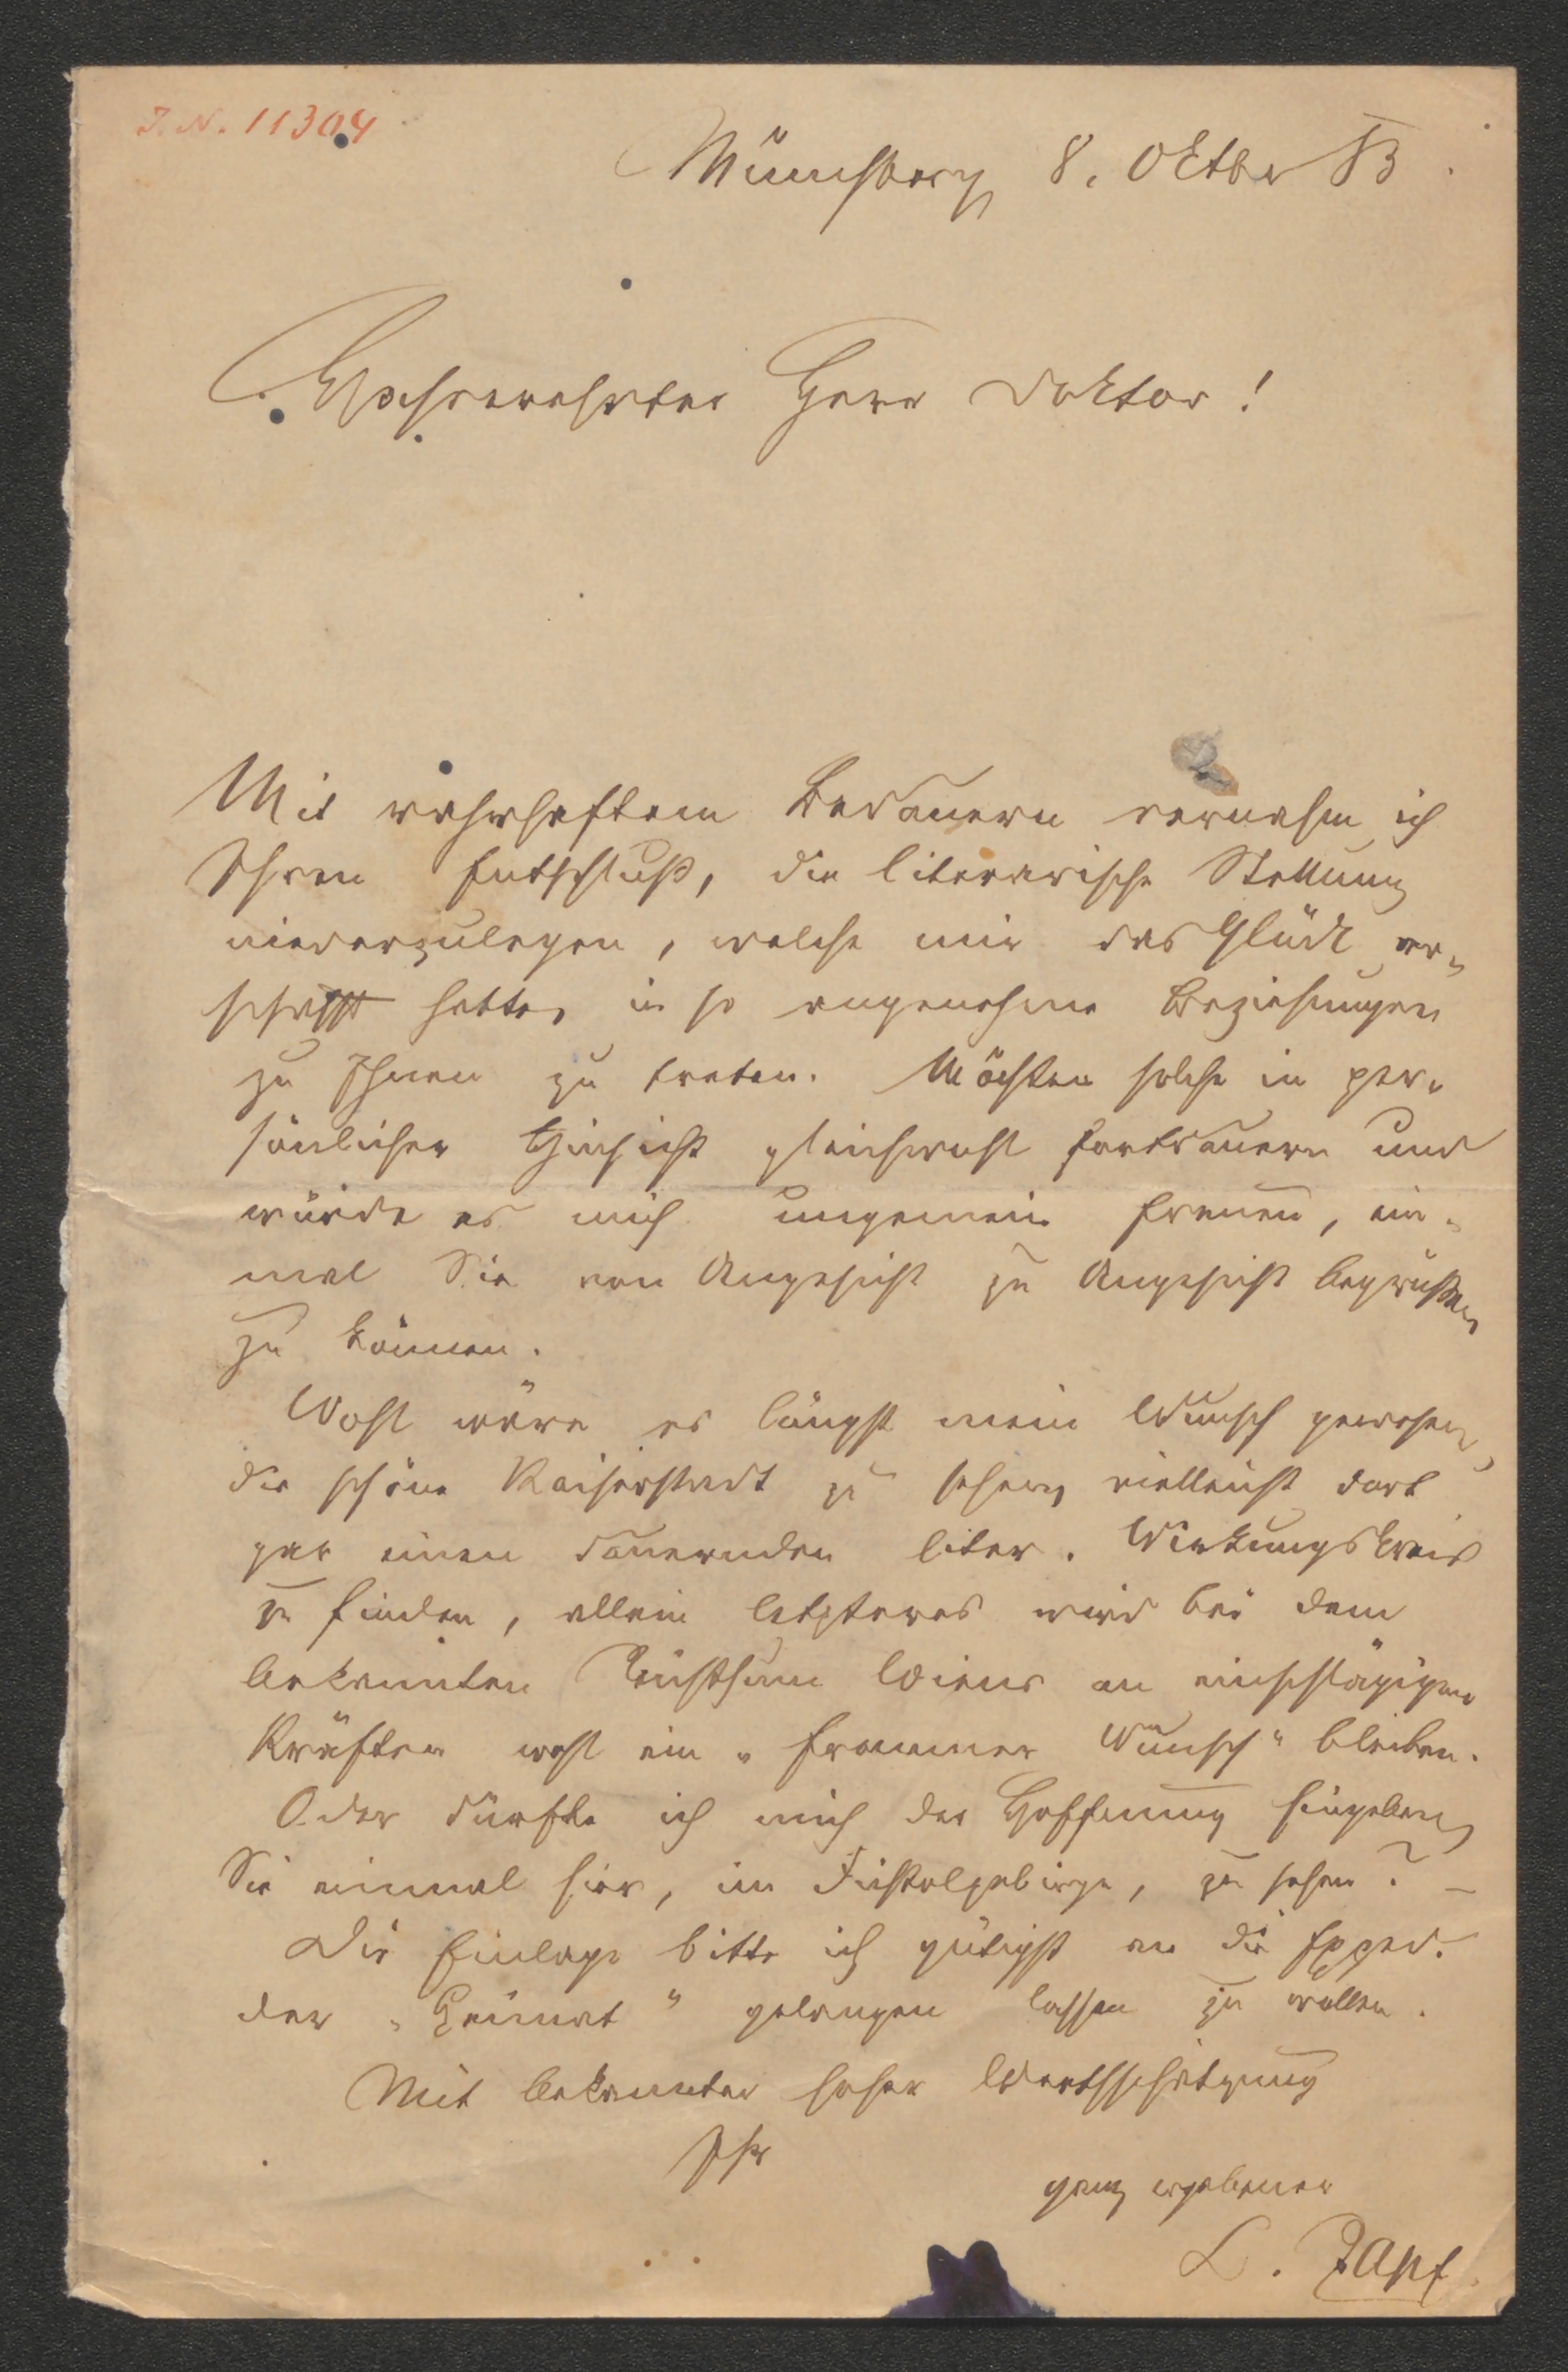 J. N. 11304
Münchberg 8. Oktbr 83.
Hochverehrter Herr Doktor!
Mit wahrhaftem Bedauern vernahm ich
Ihren Entschluß, die literarische Stellung
niederzulegen, welche mir das Glück ver-
schafft hatte, in so angenehme Beziehungen
zu Ihnen zu treten. Möchten solche in per-
sönlicher Hinsicht gleichwohl fortdauern und
würde es mich ungemein freuen, ein-
mal Sie von Angesicht zu Angesicht begrüßen
zu können.
Wohl wäre es längst mein Wunsch gewesen,
die schöne Kaiserstadt zu sehen, vielleicht dort
gar einen dauernden liter. Wirkungskreis
zu finden, allein letzteres wird bei dem
bekannten Reichthum Wiens an einschlägigen
Kräften wohl ein "frommer Wunsch" bleiben.
Oder dürfte ich mich der Hoffnung hingeben,
Sie einmal hier, im Fichtelgebirge, zu sehen? –
Die Einlage bitte ich gütigst an die Exped.
der "Heimat" gelangen lassen zu wollen.
Mit bekannter hoher Werthschätzung
Ihr
ganz ergebener
L. Zapf.